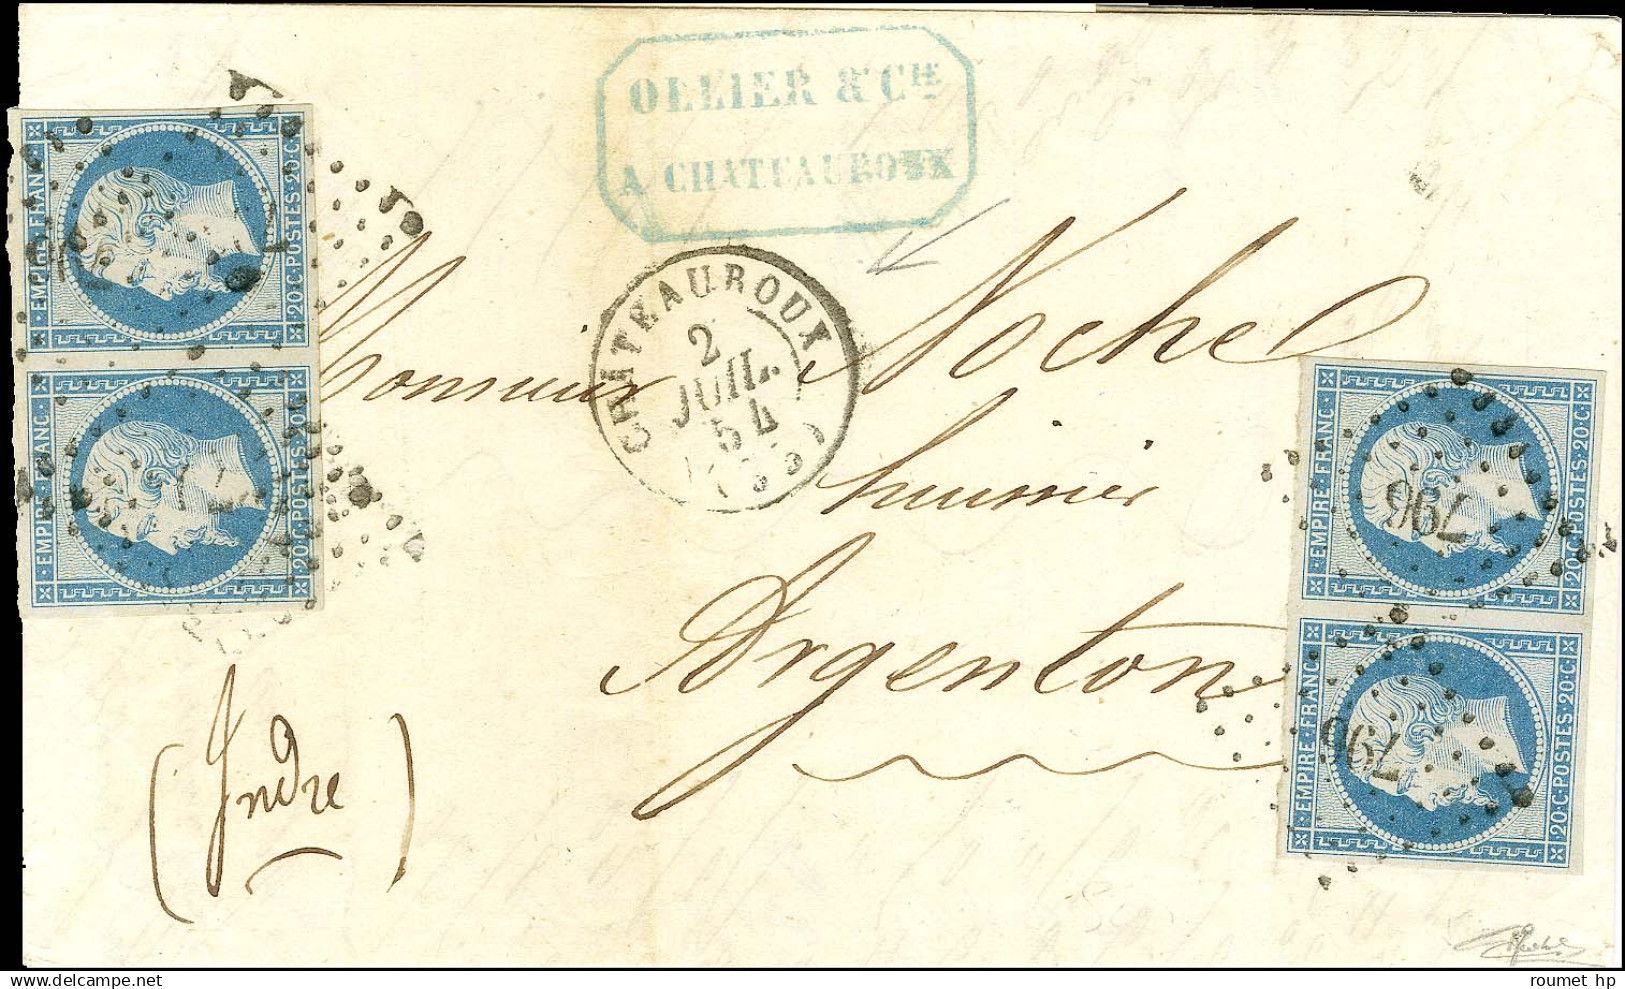 OLLIER & CIE
A CHATEAUROUX
CHATEAUROUX
2
JUIL.
54
(35)
Monsieur Nochel
huissier
Argenton
(Indre)
EMPIRE FRANC
20·C·POSTES·20·C
EMPIRE FRANC
20·C·POSTES·20·C
EMPIRE·FRANC·
20·C·POSTES·20·C
796
EMPIRE·FRANC·
20·C·POSTES·20·C
796
roumet hp